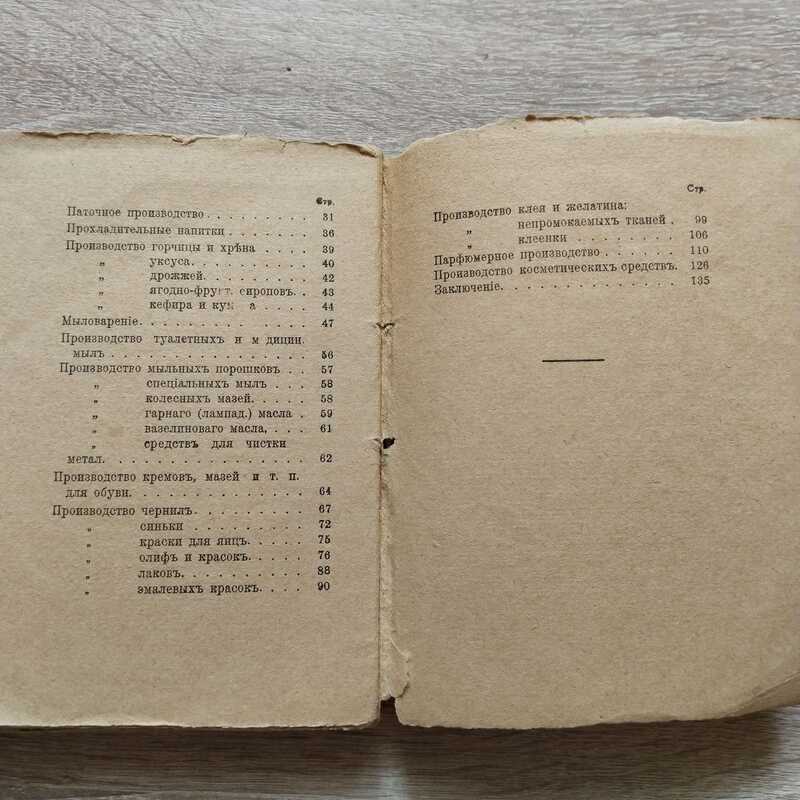 Стр.
Паточное производство . . . . . . . . . 31
Прохладительные напитки . . . . . . . 36
Производство горчицы и хрѣна . . . . 39
„ уксуса . . . . . . . . . 40
„ дрожжей . . . . . . . . 42
„ ягодно-фрукт. сироповъ . . 43
„ кефира и . . . . 44
Мыловареніе . . . . . . . . . . . . 47
Производство туалетныхъ и м дицин.
мылъ . . . . . . . . . . . . . . 56
Производство мыльныхъ порошковъ . . 57
„ спеціальныхъ мылъ . . . 58
„ колесныхъ мазей. . . . . 58
„ гарнаго (лампад.) масла . 59
„ вазелиноваго масла, . . . 61
„ средствъ для чистки
метал. . . . . . . . . . . . . . 62
Производство кремовъ, мазей и т. п.
для обуви. . . . . . . . . . . . . 64
Производство чернилъ . . . . . . . . . 67
„ синьки . . . . . . . . . 72
„ краски для яицъ . . . . . 75
„ олифъ и красокъ . . . . . 76
„ лаковъ. . . . . . . . . . 88
„ эмалевыхъ красокъ. . . . 90
Стр.
Производство клея и желатина:
„ непромокаемыхъ тканей . 99
„ клеенки . . . . . . . . 106
Парфюмерное производство . . . . . . 110
Производство косметическихъ средствъ. 126
Заключеніе. . . . . . . . . . . . . 135